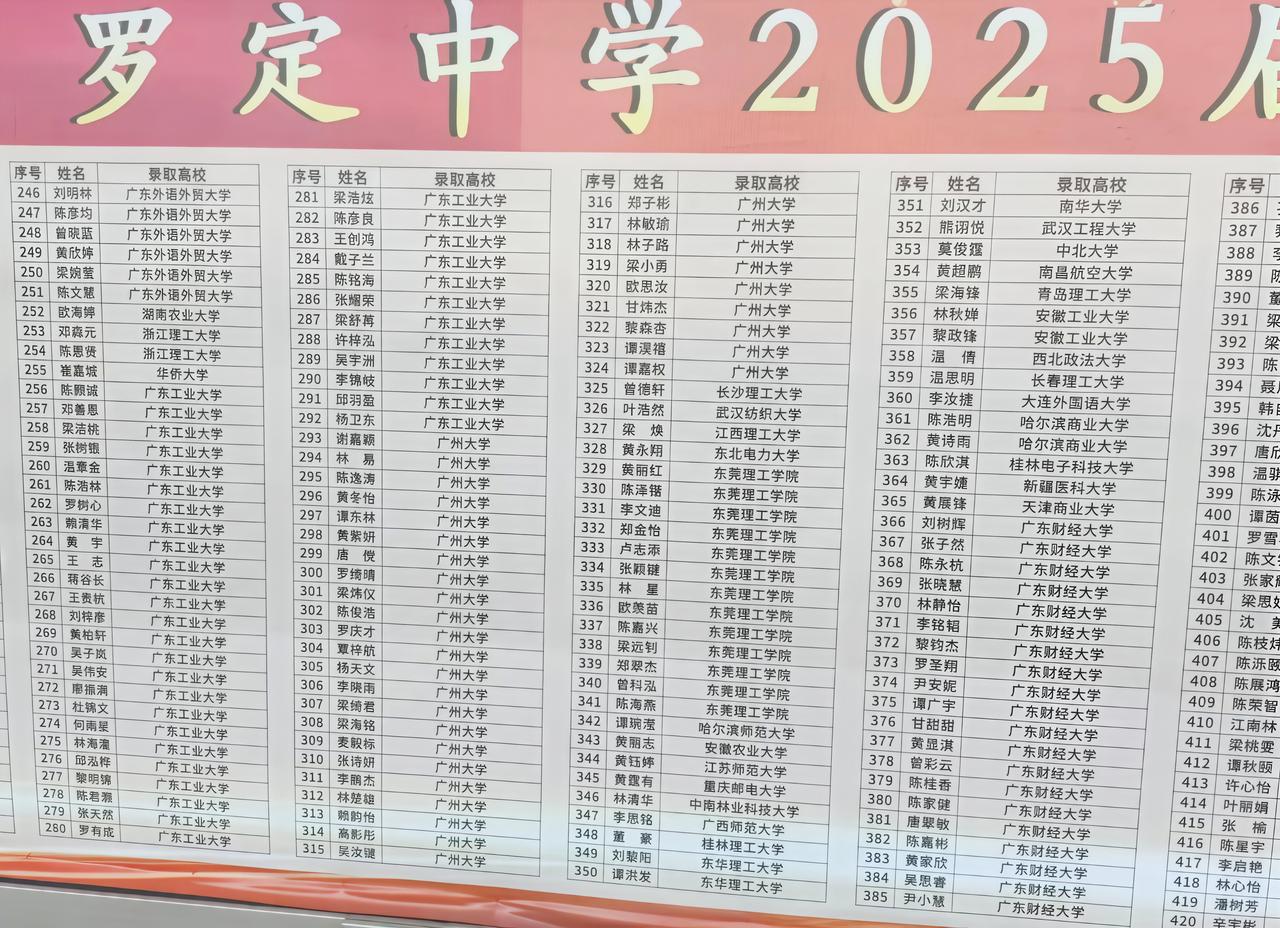 罗定中学2025届
序号 姓名 录取高校
246 刘明林 广东外语外贸大学
247 陈彦均 广东外语外贸大学
248 曾晓蓝 广东外语外贸大学
249 黄欣婷 广东外语外贸大学
250 梁婉莹 广东外语外贸大学
251 陈文慧 广东外语外贸大学
252 欧海婷 湖南农业大学
253 邓淼元 浙江理工大学
254 陈恩贤 浙江理工大学
255 崔嘉城 华侨大学
256 陈颢诚 广东工业大学
257 邓善恩 广东工业大学
258 梁洁桃 广东工业大学
259 张树银 广东工业大学
260 温章金 广东工业大学
261 陈浩林 广东工业大学
262 罗树心 广东工业大学
263 赖清华 广东工业大学
264 黄 宇 广东工业大学
265 王 志 广东工业大学
266 蒋谷长 广东工业大学
267 王贵杭 广东工业大学
268 刘梓彦 广东工业大学
269 黄柏轩 广东工业大学
270 吴子岚 广东工业大学
271 吴伟安 广东工业大学
272 廖振满 广东工业大学
273 杜锦文 广东工业大学
274 何雨星 广东工业大学
275 林海瀧 广东工业大学
276 邱泓桦 广东工业大学
277 黎明锦 广东工业大学
278 陈君灏 广东工业大学
279 张天然 广东工业大学
280 罗有成 广东工业大学
序号 姓名 录取高校
281 梁浩炫 广东工业大学
282 陈彦良 广东工业大学
283 王创鸿 广东工业大学
284 戴子兰 广东工业大学
285 陈铭海 广东工业大学
286 张耀荣 广东工业大学
287 梁舒苒 广东工业大学
288 许梓泓 广东工业大学
289 吴宇洲 广东工业大学
290 李锦岐 广东工业大学
291 邱羽盈 广东工业大学
292 杨卫东 广东工业大学
293 谢嘉颖 广州大学
294 林 易 广州大学
295 陈逸涛 广州大学
296 黄冬怡 广州大学
297 谭东林 广州大学
298 黄紫妍 广州大学
299 唐 傥 广州大学
300 罗绮晴 广州大学
301 梁炜仪 广州大学
302 陈俊浩 广州大学
303 罗庆才 广州大学
304 覃梓航 广州大学
305 杨天文 广州大学
306 李晓雨 广州大学
307 梁绮君 广州大学
308 梁海铭 广州大学
309 麦毅标 广州大学
310 张诗妍 广州大学
311 李鹏杰 广州大学
312 林楚雄 广州大学
313 赖韵怡 广州大学
314 高影彤 广州大学
315 吴汝键 广州大学
序号 姓名 录取高校
316 郑子彬 广州大学
317 林敏瑜 广州大学
318 林子路 广州大学
319 梁小勇 广州大学
320 欧思汝 广州大学
321 甘炜杰 广州大学
322 黎森杏 广州大学
323 谭淏禧 广州大学
324 谭嘉权 广州大学
325 曾德轩 长沙理工大学
326 叶浩然 武汉纺织大学
327 梁 焕 江西理工大学
328 黄永翔 东北电力大学
329 黄丽红 东莞理工学院
330 陈泽锴 东莞理工学院
331 李文迪 东莞理工学院
332 郑金怡 东莞理工学院
333 卢志添 东莞理工学院
334 张颖键 东莞理工学院
335 林 星 东莞理工学院
336 欧羡苗 东莞理工学院
337 陈嘉兴 东莞理工学院
338 梁远钊 东莞理工学院
339 郑翠杰 东莞理工学院
340 曾科泓 东莞理工学院
341 陈海燕 东莞理工学院
342 谭琬滢 哈尔滨师范大学
343 黄丽志 安徽农业大学
344 黄钰婷 江苏师范大学
345 黄霆有 重庆邮电大学
346 林清华 中南林业科技大学
347 李思铭 广西师范大学
348 董 豪 桂林理工大学
349 刘黎阳 东华理工大学
350 谭洪发 东华理工大学
序号 姓名 录取高校
351 刘汉才 南华大学
352 熊诩悦 武汉工程大学
353 莫俊霆 中北大学
354 黄超鹏 南昌航空大学
355 梁海锋 青岛理工大学
356 林秋婵 安徽工业大学
357 黎政锋 安徽工业大学
358 温 倩 西北政法大学
359 温思明 长春理工大学
360 李汝捷 大连外国语大学
361 陈浩明 哈尔滨商业大学
362 黄诗雨 哈尔滨商业大学
363 陈欣淇 桂林电子科技大学
364 黄宇婕 新疆医科大学
365 黄展锋 天津商业大学
366 刘树辉 广东财经大学
367 张子然 广东财经大学
368 陈永杭 广东财经大学
369 张晓慧 广东财经大学
370 林静怡 广东财经大学
371 李铭锠 广东财经大学
372 黎钧杰 广东财经大学
373 罗圣翔 广东财经大学
374 尹安妮 广东财经大学
375 谭广宇 广东财经大学
376 甘甜甜 广东财经大学
377 黄显淇 广东财经大学
378 曾彩云 广东财经大学
379 陈桂香 广东财经大学
380 陈家健 广东财经大学
381 唐翠敏 广东财经大学
382 陈嘉彬 广东财经大学
383 黄家欣 广东财经大学
384 吴思睿 广东财经大学
385 尹小慧 广东财经大学
序号
386
387
388
389
390
391
392 梁
393 陈
394
395 韩
396 沈
397 唐欣
398 温
399 陈泳
400 谭茵
401 罗雪
402 陈文
403 张家
404 梁思
405 沈
406 陈枝炜
407 陈泺颐
408 陈展鸿
409 陈荣智
410 江南林
411 梁桃雯
412 谭秋颐
413 许心怡
414 叶丽娟
415 张 榆
416 陈星宇
417 李启艳
418 林心怡
419 潘树芳
420